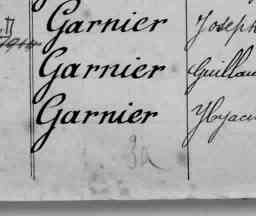 Garnier Joseph
Garnier Guillau
Garnier Hyacin
3a